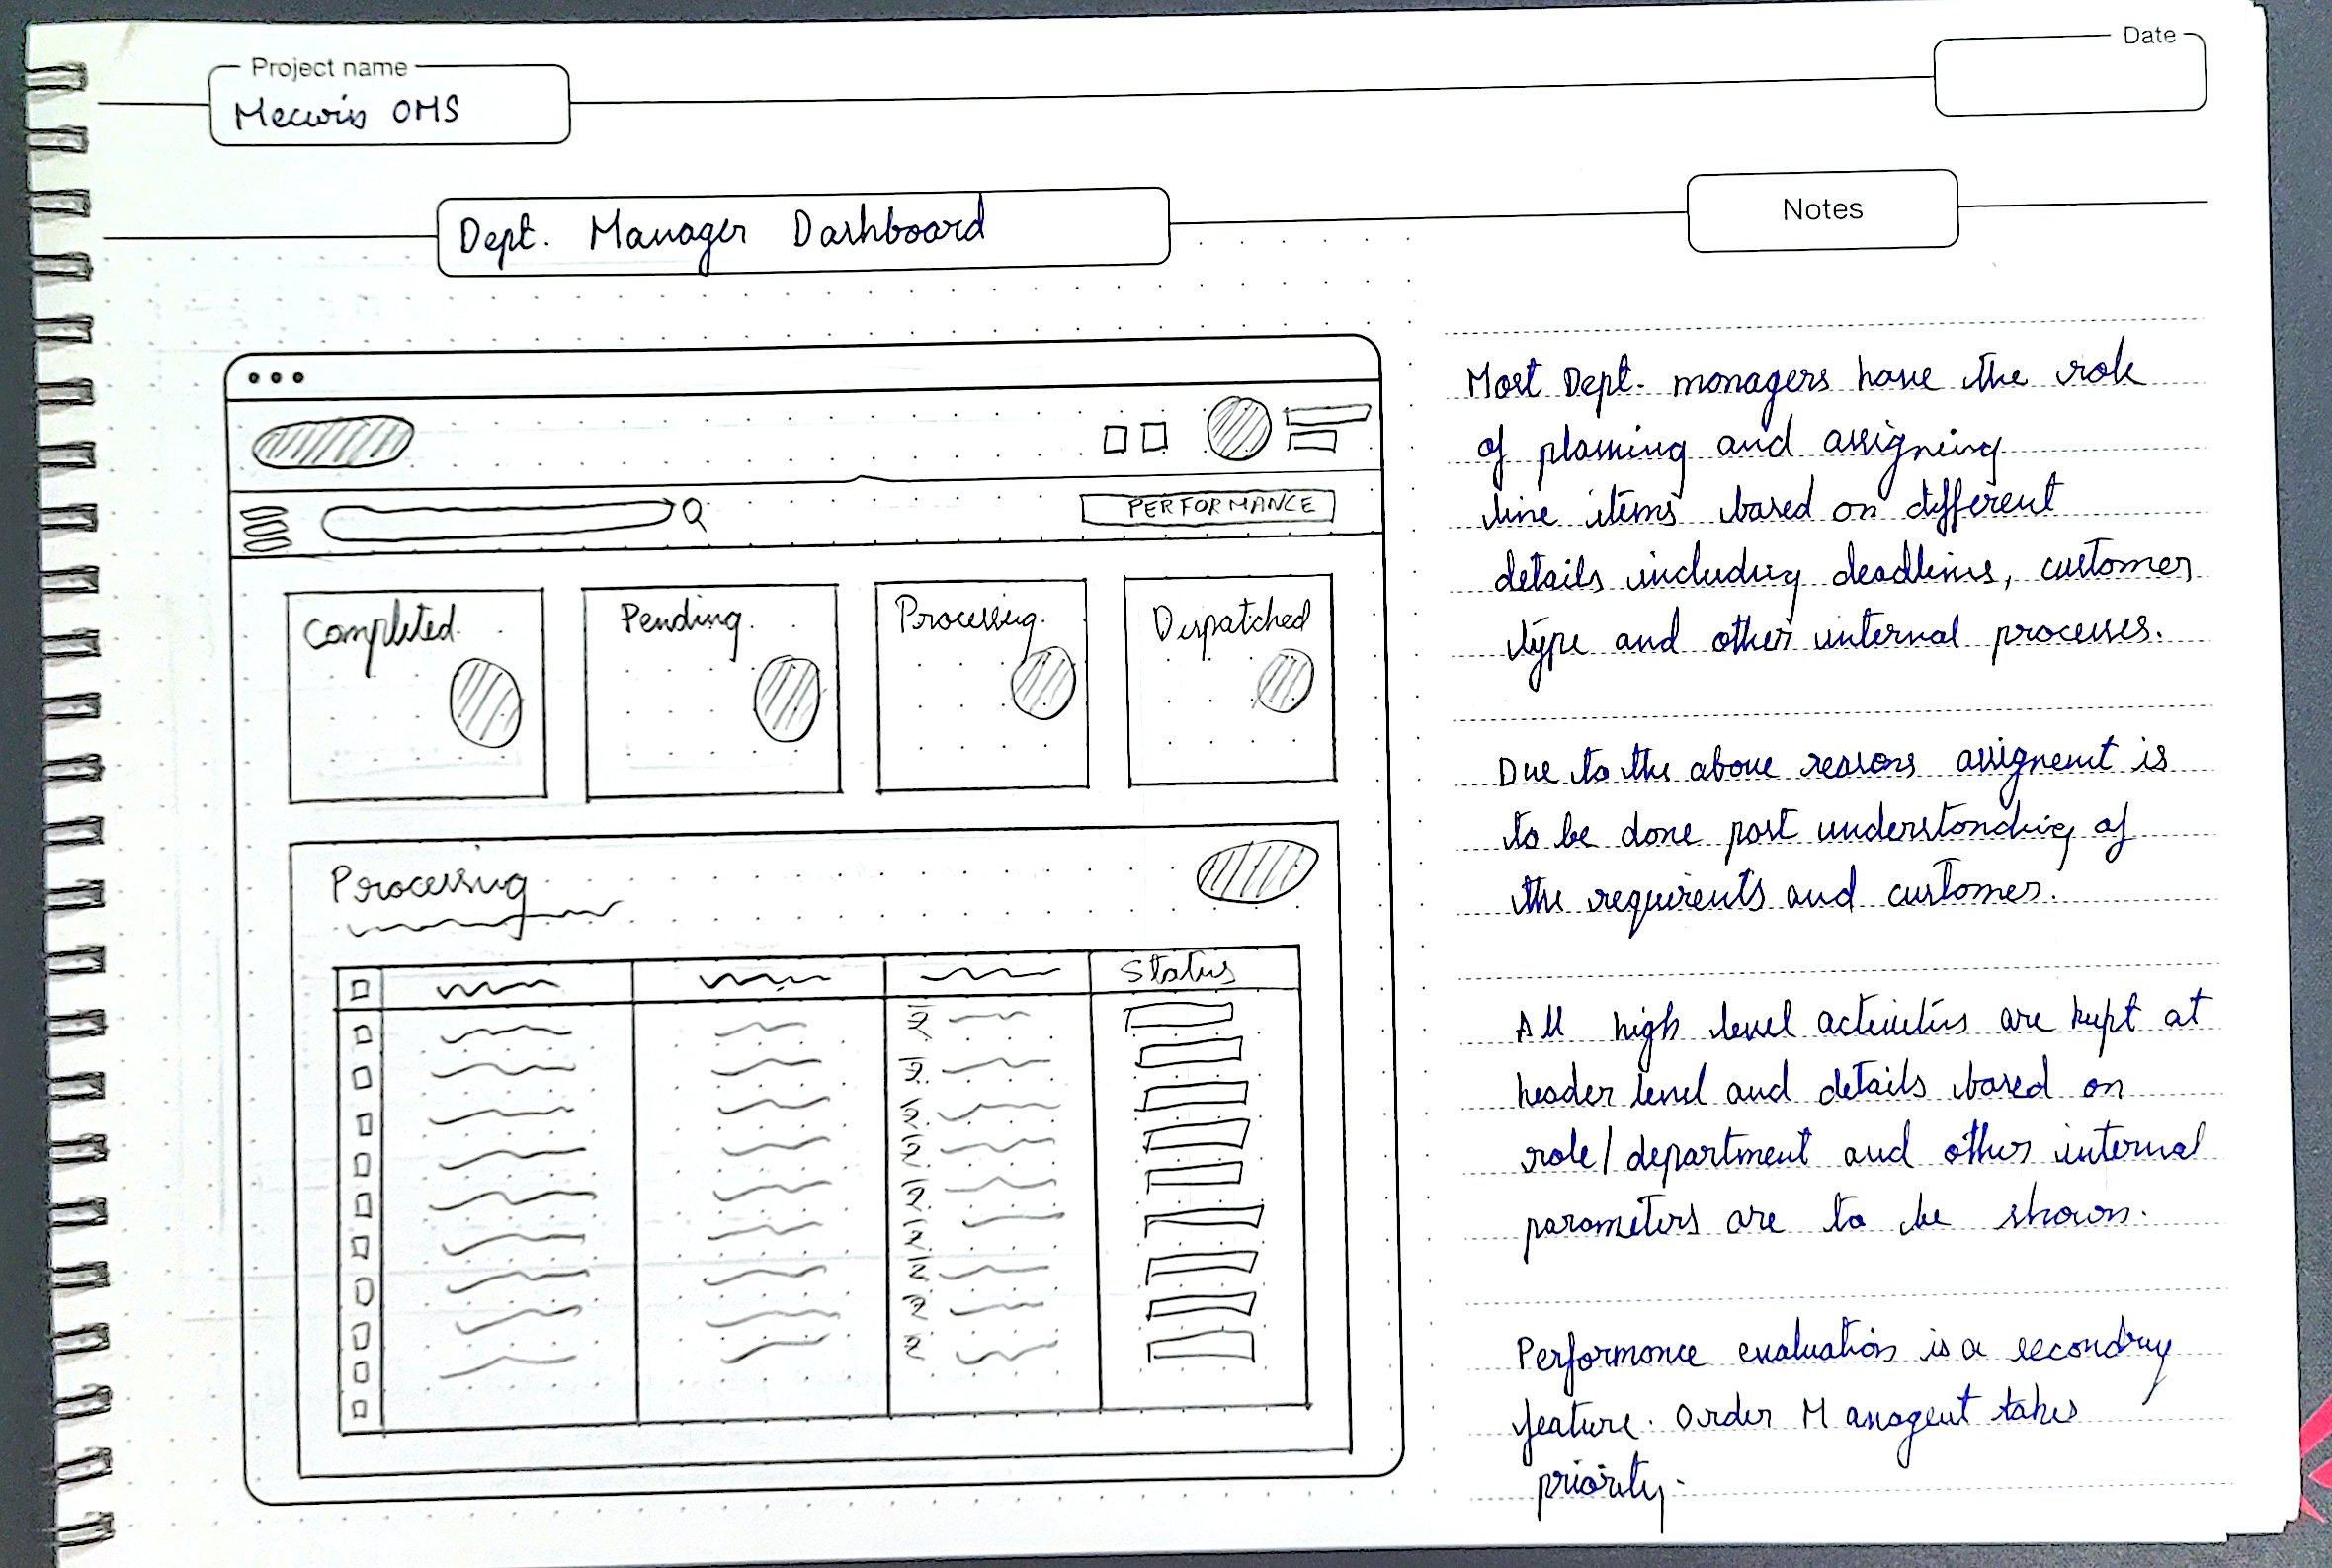 Project name
Mecwin OMS
Date
Dept. Manager Dashboard
Notes
PERFORMANCE
Completed
Pending
Processing
Dispatched
Processing
Status
Most Dept. managers have the role
of planning and assigning
line items based on different
details including deadlines, customer
type and other internal processes.
Due to the above reasons assignemt is
to be done post understanding of
the requirents and customer.
All high level activities are kept at
header level and details based on
role/department and other internal
parameters are to be shown.
Performance evaluation is a secondry
feature. Order Managent takes
priority.